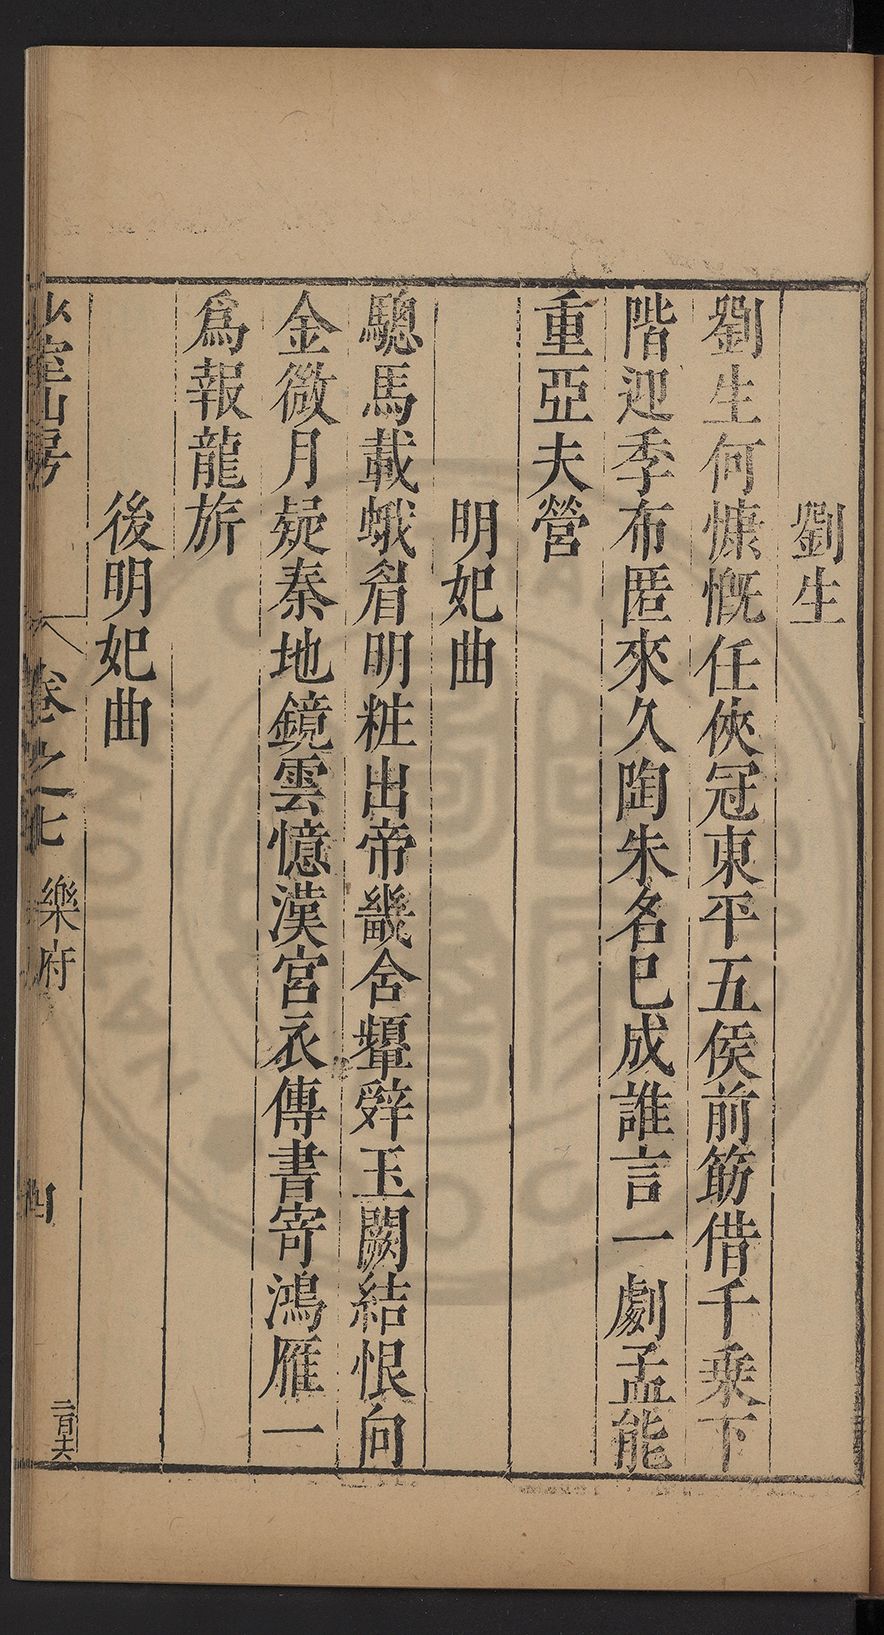 劉生
劉生何慷慨任俠冠東平五侯前筯借千乗下
階迎季布匿來久陶朱名已成誰言一劇孟能
重亞夫營
明妃曲
驄馬載蛾眉明粧出帝畿含顰辭玉闕結恨向
金微月疑秦地鏡雲憶漢宮衣傳書寄鴻雁一
爲報龍旂
後明妃曲
少室山房
卷之七
樂府
四
二百六